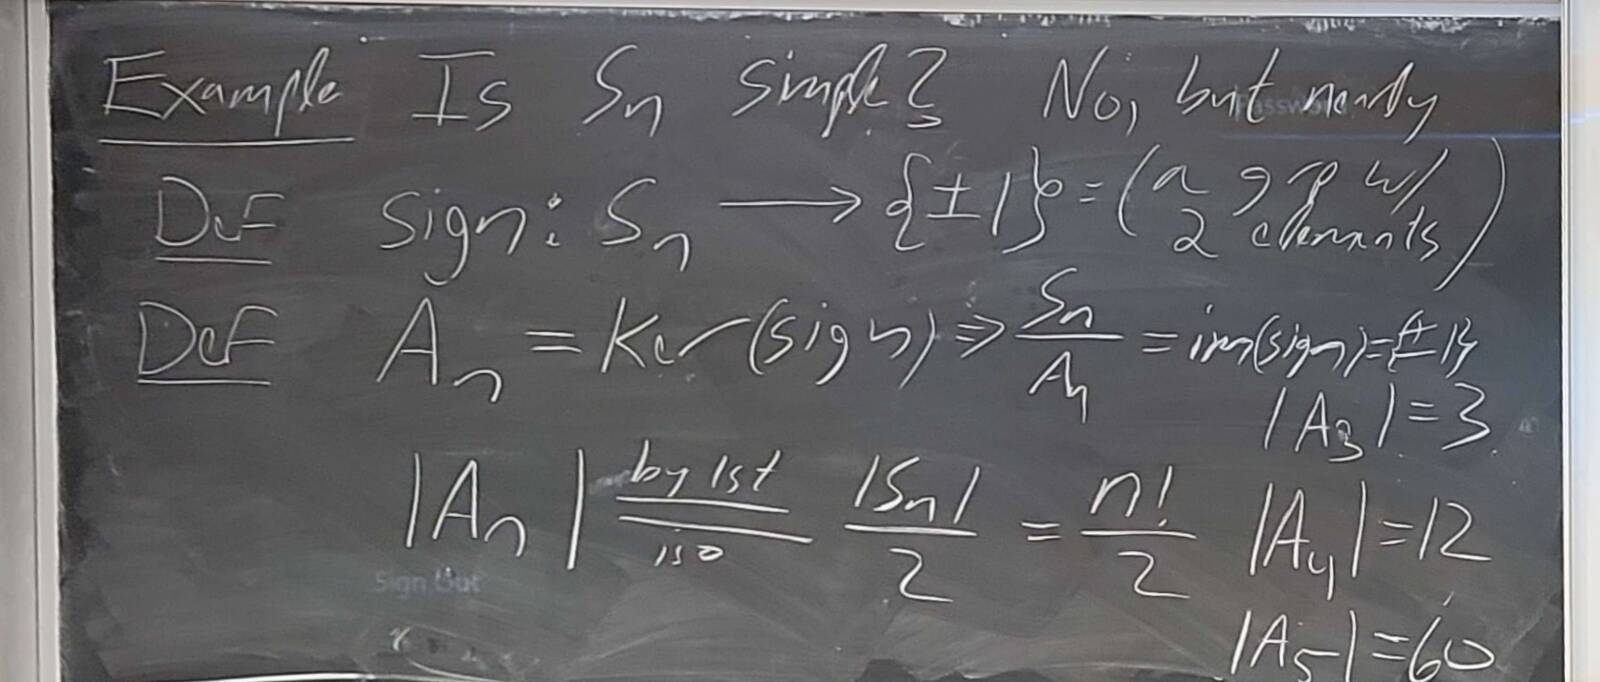 Example Is Sn simple? No, but nearly
Def sign: Sn → {±1} = (a grp w/ 2 elements)
Def An = Ker(sign) ⇒ Sn/An = im(sign) = {±1}
|A3| = 3
|An| by 1st iso = |Sn|/2 = n!/2 |A4| = 12
|A5| = 60
Sign Out
Password